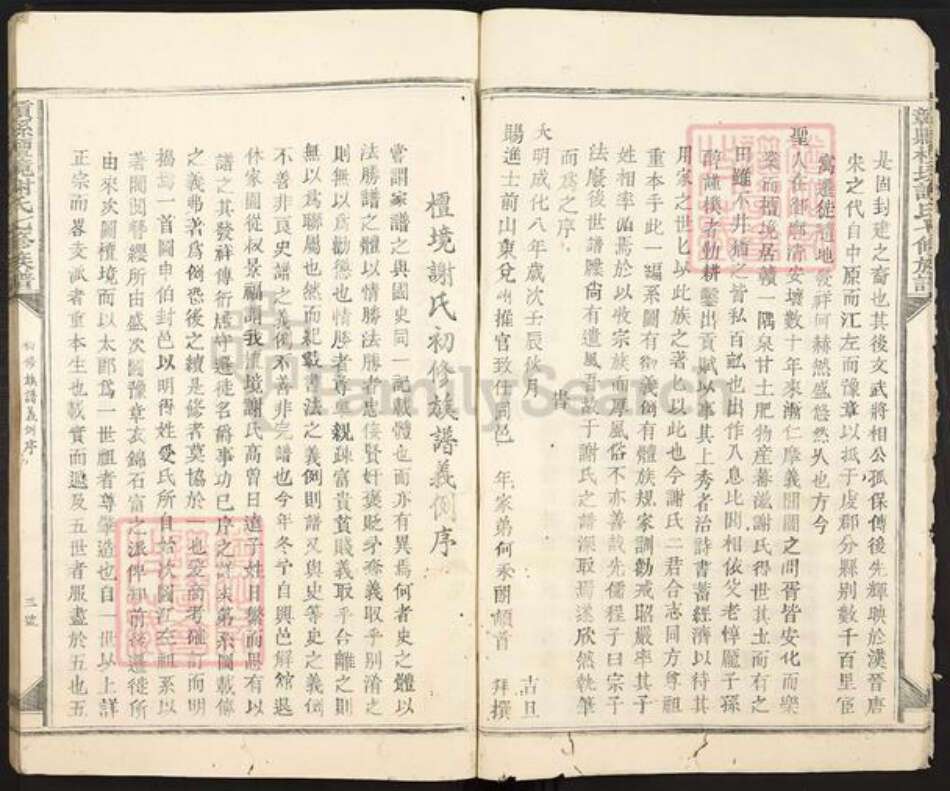 是固封建之裔也其後文武將相公孤保傅後先輝映於漢晉唐
宋之代自中原而江左而豫章以抵于虔郡分縣別數千百里宦
寓遷徙隨地發祥何赫然盛悠然久也方今
聖人在御廓清安壤數十年來漸仁摩義閭閻之間胥皆安化而樂
業而檀境居贛一隅泉甘土肥物産蕃滋謝氏得世其土而有之
田雖不井猶之皆私百畝也出作入息比閭相依父老惇龎子孫
醇謹樸者勤耕鑿出貢賦以事其上秀者治詩書蓄經濟以待其
用家之世匕以此族之著匕以此也今謝氏二君合志同方尊祖
重本手此一編系圖有例義例有體族規家訓勸戒昭嚴率其子
姓相率循焉於以收宗族而厚風俗不亦善哉先儒程子曰宗子
法廢後世譜牒尚有遺風吾故于謝氏之譜深取焉遂欣然執筆
而為之序
大明成化八年歲次壬辰秋月 吉旦
賜進士前山東兗州推官致仕同邑 年家弟何 頓首 拜撰
檀境謝氏初修族譜義例序
嘗謂家譜之與國史同一記載體也而亦有異焉何者史之體以
法勝譜之體以情勝法勝者忠佞賢奸褒貶予奪義取乎別淆之
則無以為勸懲也情勝者尊卑親疎富貴貧賤義取乎合離之則
無以為聯屬也然而紀載書法之義例則譜又與史等史之義例
不善非良史譜之義例不善非完譜也今年冬予自興邑解舘退
休家園從叔景福謂我檀境謝氏高曾日遠子姓日繁而思有以
譜之其發祥傳衍居守遷徙名爵事功已序之詳矣第系圖載傳
之義弗著為例恐後之續是修者莫協於一也爰商考確訂而明
揭焉一首圖申伯封邑以明得姓受氏所自始次圖江左詞系以
著閥閱簪纓所由盛次圖豫章衣錦石富之派俾知前後遷徙所
由來次圖檀境而以太郎為一世祖者尊肇造也自一世以上詳
正宗而畧支派者重本生也載實而遞及五世者服盡於五也五
初修族譜義例序
三號